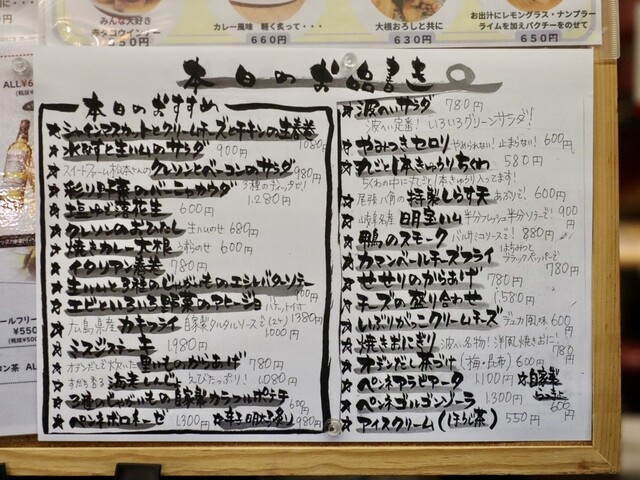 みんな大好き
650円
カレー風味 軽く炙って・・・
660円
大根おろしと共に
630円
お出汁にレモングラス・ナンプラー
ライムを加えパクチーをのせて
650円
本日のお品書き
本日のおすすめ
シャインマスカットとクリームチーズとチキンの生春巻 1080円
水なすと生ハムのサラダ 900円
クレソンとベーコンのサラダ 980円
彩り野菜のバーニャカウダ 3種のディップで! 1,280円
塩ゆで落花生 600円
クレソンのおひたし 生ハムのせ 680円
焼きカレー大根 うずらのせ 600円
イタリアン春巻 780円
生ハムと3種のじゃがいものエシレバターソテー 900円
エビといろいろ野菜のアヒージョ バケット付き 1380円
広島県産 カキフライ 自家製タルタルソースで(2ケ) 1000円
1980円
おでんだしで炊いた 里いものからあげ 780円
えびたっぷり! 1,080円
3種のじゃがいもの自家製カラフルポテチ 600円
ペンネボロネーゼ 1300円 ☆辛子明太子 980円
波へいサラダ 780円
波へい定番! いろいろグリーンサラダ!
やみつきセロリ やめられない! 止まらない! 600円
丸ごと1本きゅうりちくわ 580円
ちくわの中に丸ごと1本きゅうり入ってます!
尾張八角の 特製しらす天 あぶりで! 600円
岐阜名産 明宝ハム 半分フレッシュ半分ソテーで! 900円
鴨のスモーク バルサミコソースで! 880円
カマンベールチーズフライ はちみつとブラックペッパーで 780円
せせりのからあげ 780円
チーズの盛り合わせ 1,580円
いぶりがっこクリームチーズ 600円
焼きおにぎり 波へい名物! 洋風焼きおに! 780円
おでんだし茶づけ (梅・昆布) 600円
ペンネアラビアータ 1,100円
ペンネゴルゴンゾーラ 1300円
☆自家製
600円
アイスクリーム(ほうじ茶) 550円